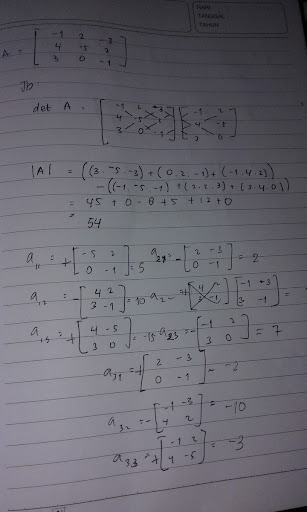 HARI
TANGGAL
TAHUN
A = [ -1 2 -3
4 -5 2
3 0 -1 ]
Jb
det A = [ -1 2 -3 ] [ -1 2
4 -5 2 4 -5
3 0 -1 3 0 ]
|A| = ((3. -5. -3) + (0. 2. -1) + (-1. 4. 2))
- ((-1. -5. -1) + (2. 2. 3) + (3. 4. 0))
= 45 + 0 - 8 + 5 + 12 + 0
= 54
a11 = + [ -5 2 / 0 -1 ] = 5 a21 = - [ 2 -3 / 0 -1 ] = 2
a12 = - [ 4 2 / 3 -1 ] = 10 a2 - [ -1 -3 / 3 -1 ] =
a13 = + [ 4 -5 / 3 0 ] = -15 a23 = - [ -1 2 / 3 0 ] = 7
a31 = + [ 2 -3 / 0 -1 ] = -2
a32 = - [ -1 -3 / 4 2 ] = -10
a33 = + [ -1 2 / 4 -5 ] = -3